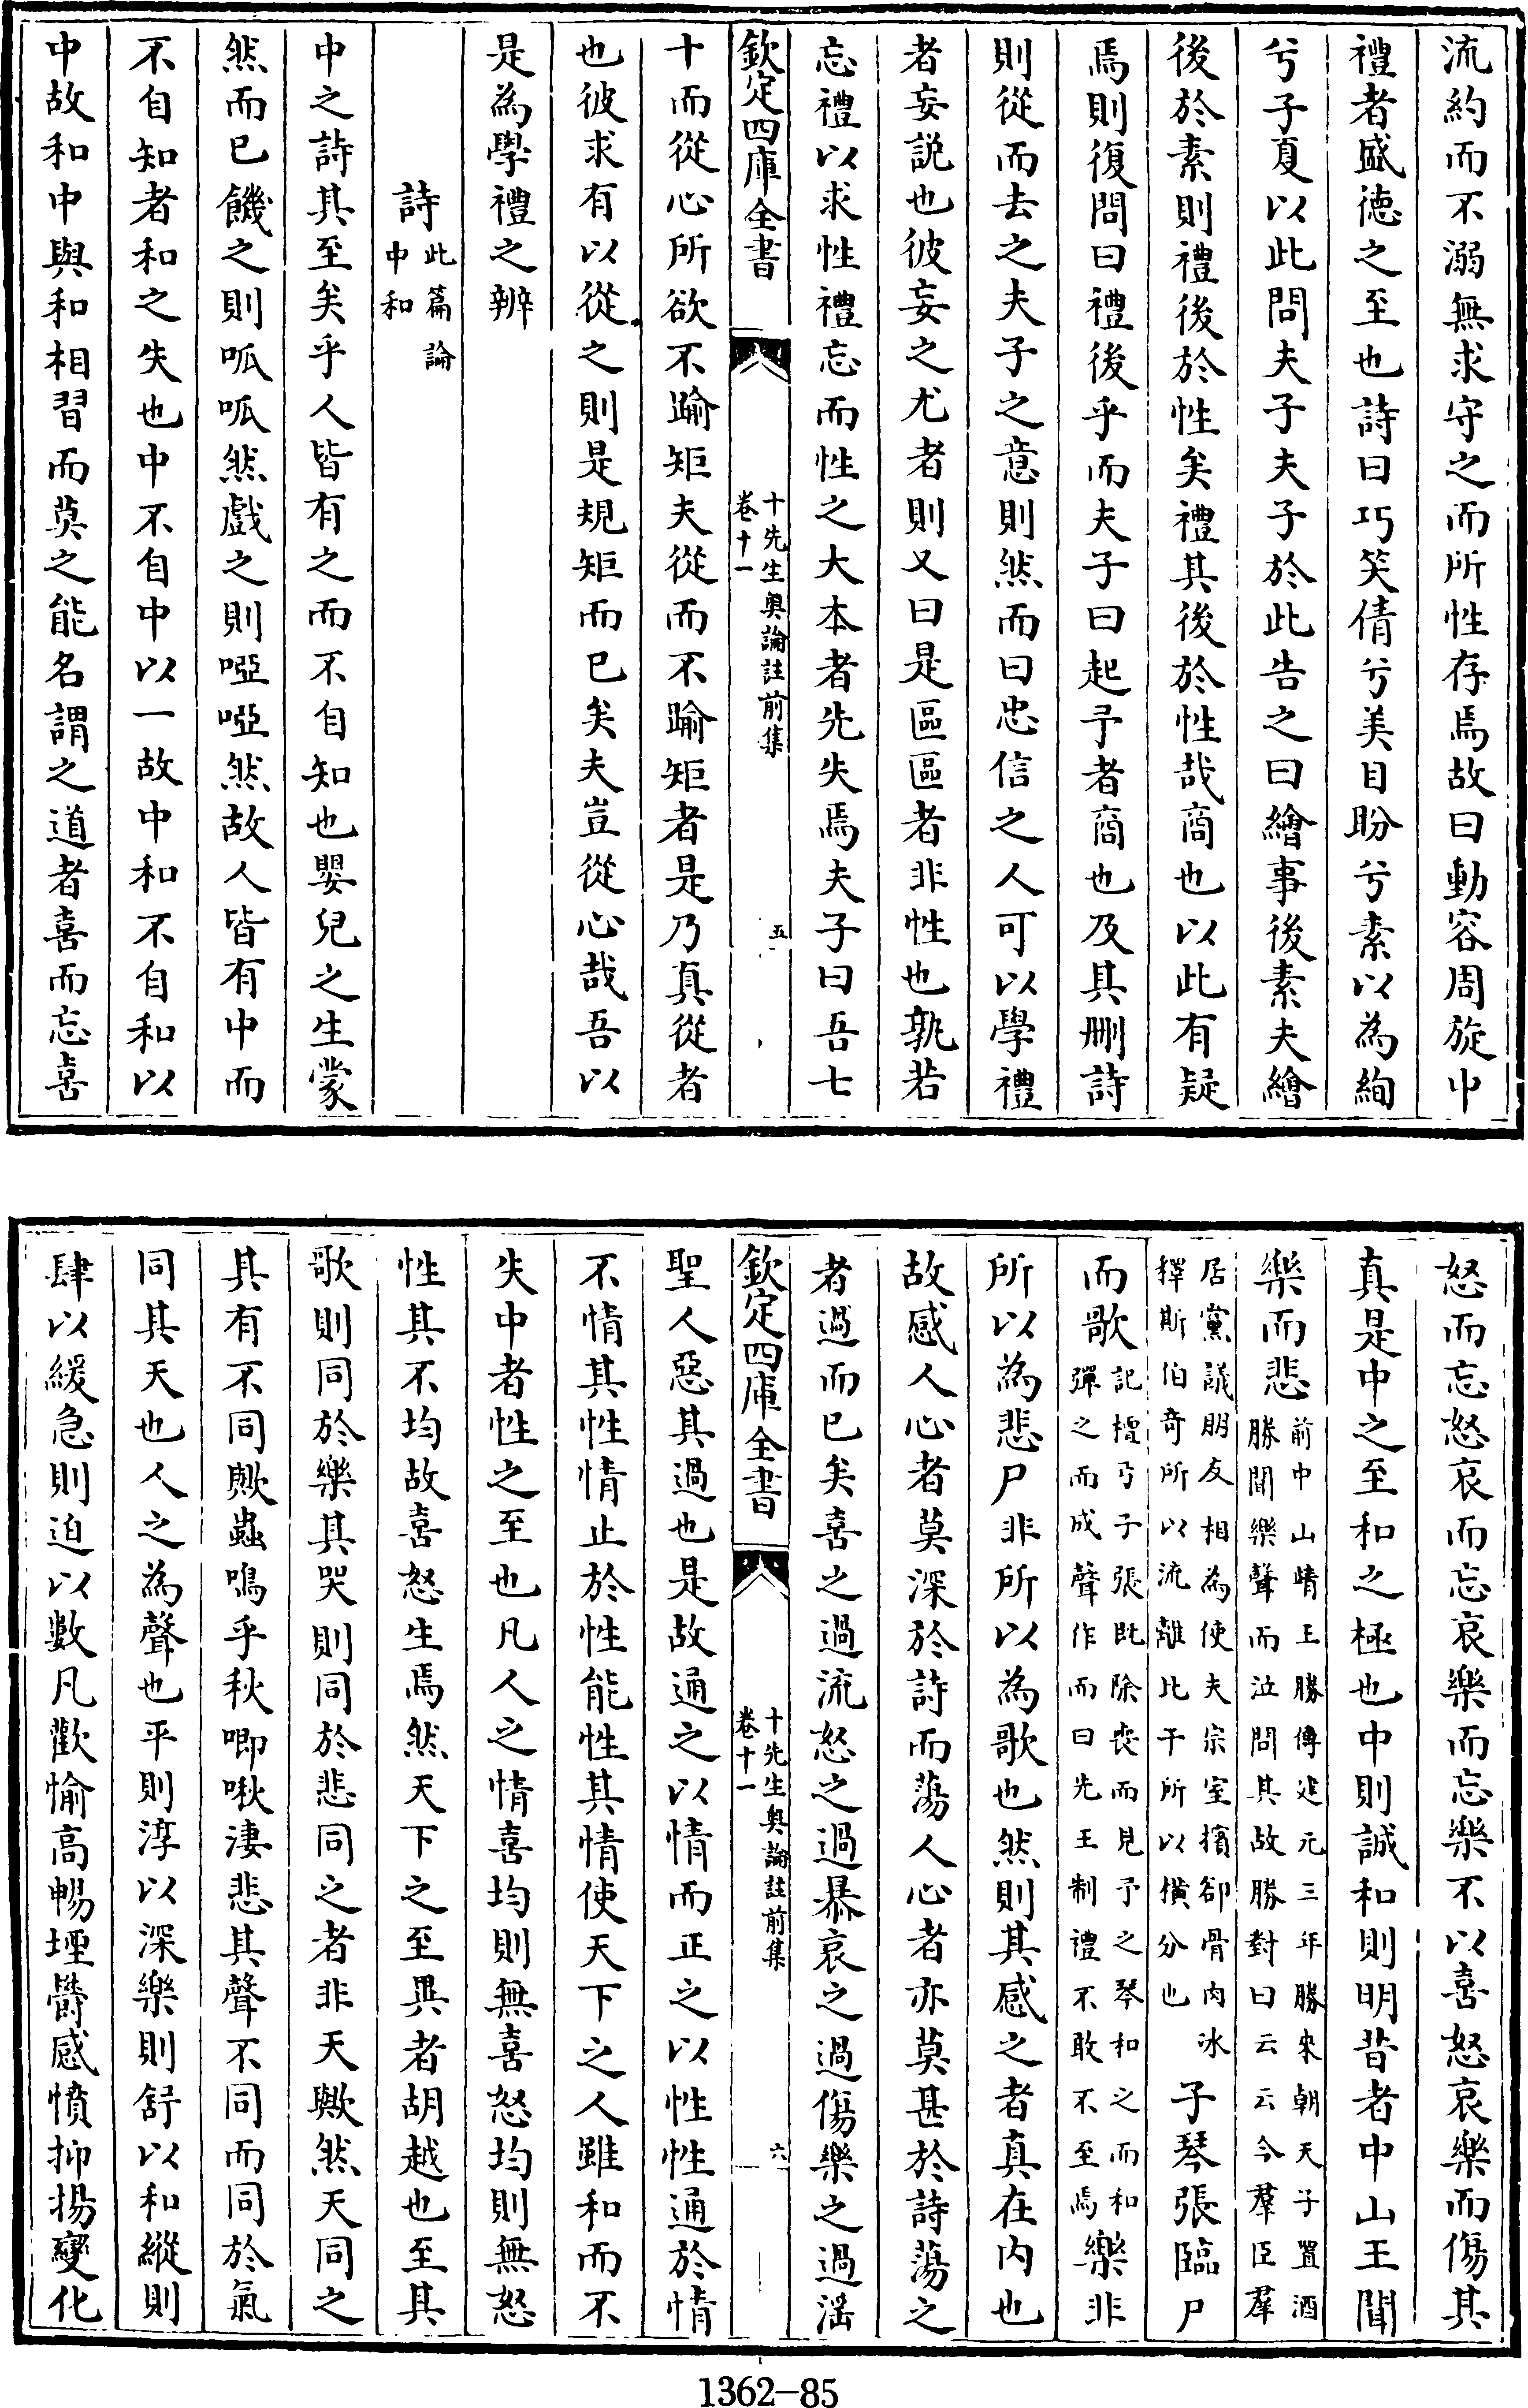 流約而不溺無求守之而所性存焉故曰動容周旋中
禮者盛德之至也詩曰巧笑倩兮美目盼兮素以為絢
兮子夏以此問夫子夫子於此告之曰繪事後素夫繪
後於素則禮後於性矣禮其後於性哉商也以此有疑
焉則復問曰禮後乎而夫子曰起予者商也及其刪詩
則從而去之夫子之意則然而曰忠信之人可以學禮
者妄説也彼妄之尤者則又曰是區區者非性也孰若
忘禮以求性禮忘而性之大本者先失焉夫子曰吾七
欽定四庫全書
十先生奧論註前集
卷十一
五
十而從心所欲不踰矩夫從而不踰矩者是乃真從者
也彼求有以從之則是規矩而已矣夫豈從心哉吾以
是為學禮之辨
詩
此篇論
中和
中之詩其至矣乎人皆有之而不自知也嬰兒之生蒙
然而已饑之則呱呱然戲之則啞啞然故人皆有中而
不自知者和之失也中不自中以一故中和不自和以
中故和中與和相習而莫之能名謂之道者喜而忘喜
怒而忘怒哀而忘哀樂而忘樂不以喜怒哀樂而傷其
真是中之至和之極也中則誠和則明昔者中山王聞
樂而悲
前中山靖王勝傳建元三年勝來朝天子置酒
勝聞樂聲而泣問其故勝對曰云云今羣臣羣
居黨議朋友相為使夫宗室擯卻骨肉冰
釋斯伯奇所以流離比干所以橫分也
子琴張臨尸
而歌
記檀弓子張既除喪而見予之琴和之而和
彈之而成聲作而曰先王制禮不敢不至焉
樂非
所以為悲尸非所以為歌也然則其感之者真在內也
故感人心者莫深於詩而蕩人心者亦莫甚於詩蕩之
者過而已矣喜之過流怒之過暴哀之過傷樂之過淫
欽定四庫全書
十先生奧論註前集
卷十一
六
聖人惡其過也是故通之以情而正之以性性通於情
不情其性情止於性能性其情使天下之人雖和而不
失中者性之至也凡人之情喜均則無喜怒均則無怒
性其不均故喜怒生焉然天下之至異者胡越也至其
歌則同於樂其哭則同於悲同之者非天歟然天同之
其有不同歟蟲鳴乎秋唧啾淒悲其聲不同而同於氣
同其天也人之為聲也平則淳以深樂則舒以和縱則
肆以緩急則迫以數凡歡愉高暢堙鬱感憤抑揚變化
1362—85